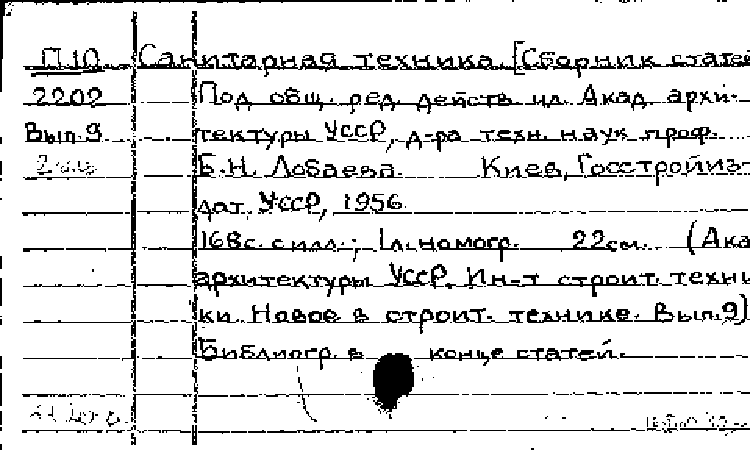 П.10 Санитарная техника. [Сборник статей
2202 Под общ. ред. действ. чл. Акад. архи-
Вып.9 тектуры УССР, д-ра техн. наук проф.
Б.Н. Лобаева. Киев, Госстройиз-
дат УССР, 1956
168с. с илл.; 1 л. номогр. 22см. (Ака
архитектуры УССР. Ин-т строит. техни
ки. Новое в строит. технике. Вып.9)
Библиогр. в конце статей.